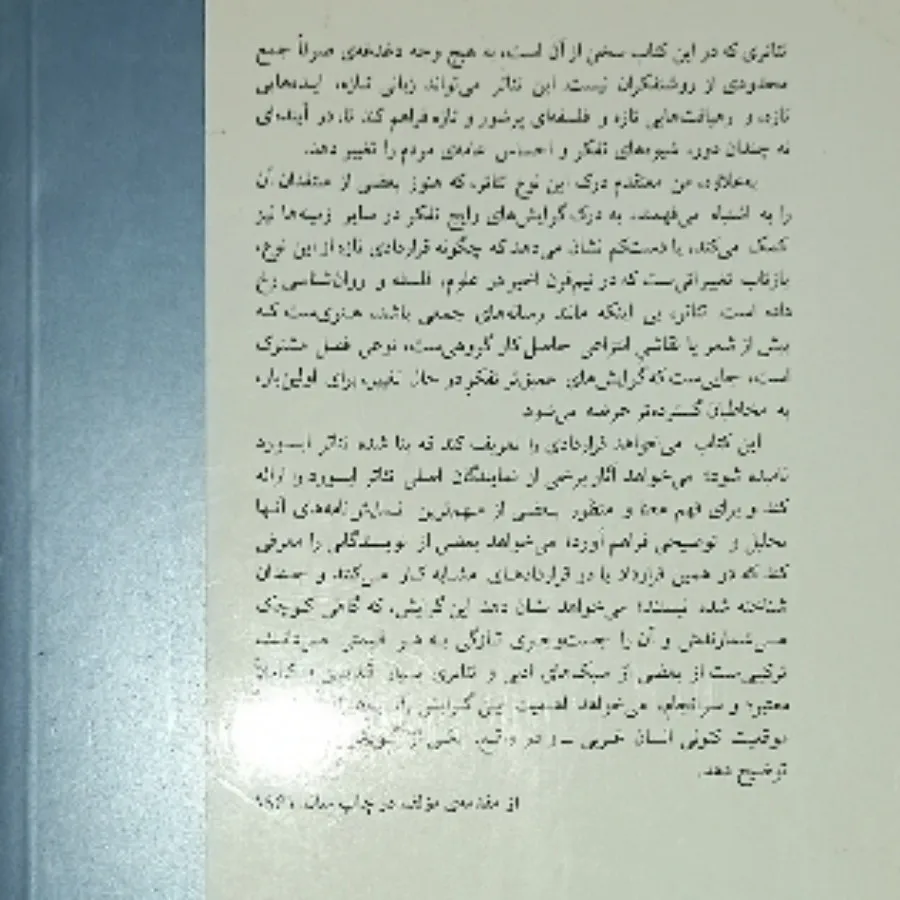 تئاتری که در این کتاب سخن از آن است، به هیچ وجه دغدغه‌ی صرفاً جمع
محدودی از روشنفکران نیست. این تئاتر می‌تواند زبانی تازه، ایده‌هایی
تازه، و رهیافت‌هایی تازه و فلسفه‌ای پرشور و تازه فراهم کند تا، در آینده‌ای
نه چندان دور، شیوه‌های تفکر و احساس عامه‌ی مردم را تغییر دهد.
به‌علاوه، من معتقدم درک این نوع تئاتر، که هنوز بعضی از منتقدان آن
را به اشتباه می‌فهمند، به درک گرایش‌های رایج تفکر در سایر زمینه‌ها نیز
کمک می‌کند، یا دست‌کم نشان می‌دهد که چگونه قراردادی تازه از این نوع،
بازتاب تغییراتی‌ست که در نیم‌قرن اخیر در علوم، فلسفه و روان‌شناسی رخ
داده است. تئاتر، بی اینکه مانند رسانه‌های جمعی باشد، هنری‌ست که
بیش از شعر یا نقاشی انتزاعی حاصل کار گروهی‌ست، نوعی فصل مشترک
است، جایی‌ست که گرایش‌های عمیق‌تر تفکرِ در حال تغییر، برای اولین‌بار،
به مخاطبان گسترده‌تر عرضه می‌شود.
این کتاب می‌خواهد قراردادی را تعریف کند که بنا شده تئاتر ابسورد
نامیده شود؛ می‌خواهد آثار برخی از نمایندگان اصلی تئاتر ابسورد را ارائه
کند و برای فهم معنا و منظور بعضی از مهم‌ترین نمایش‌نامه‌های آنها
تحلیل و توضیحی فراهم آورد؛ می‌خواهد بعضی از نویسندگانی را معرفی
کند که در همین قرارداد یا در قراردادهای مشابه کار می‌کنند و چندان
شناخته شده نیستند؛ می‌خواهد نشان دهد این گرایش، که گاهی کوچک
می‌شمارندش و آن را جست‌وجوی تازگی به هر قیمتی می‌دانند،
ترکیبی‌ست از بعضی از سبک‌های ادبی و تئاتری بسیار قدیمی و کاملاً
معتبر؛ و سرانجام، می‌خواهد اهمیت این گرایش را
موقعیت کنونی انسان غربی ــ و در واقع، یکی از
توضیح دهد.
از مقدمه‌ی مؤلف در چاپ سال